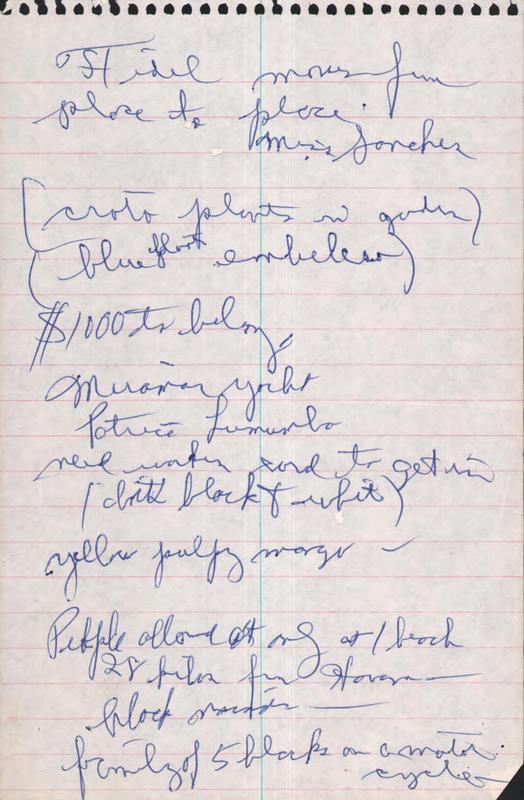 Fidel moves from
place to place.
Miss Sanchez
(croto plants in garden)
(blue plant embeleso)
$1000 to belong
Miramar yacht
Patrice Lumumba
need worker card to get in
(both black & white)
yellow pulpy mango -
People allowed at only at 1 beach
28 kilos from Havana —
black maids —
family of 5 blacks on a motor
cycle -